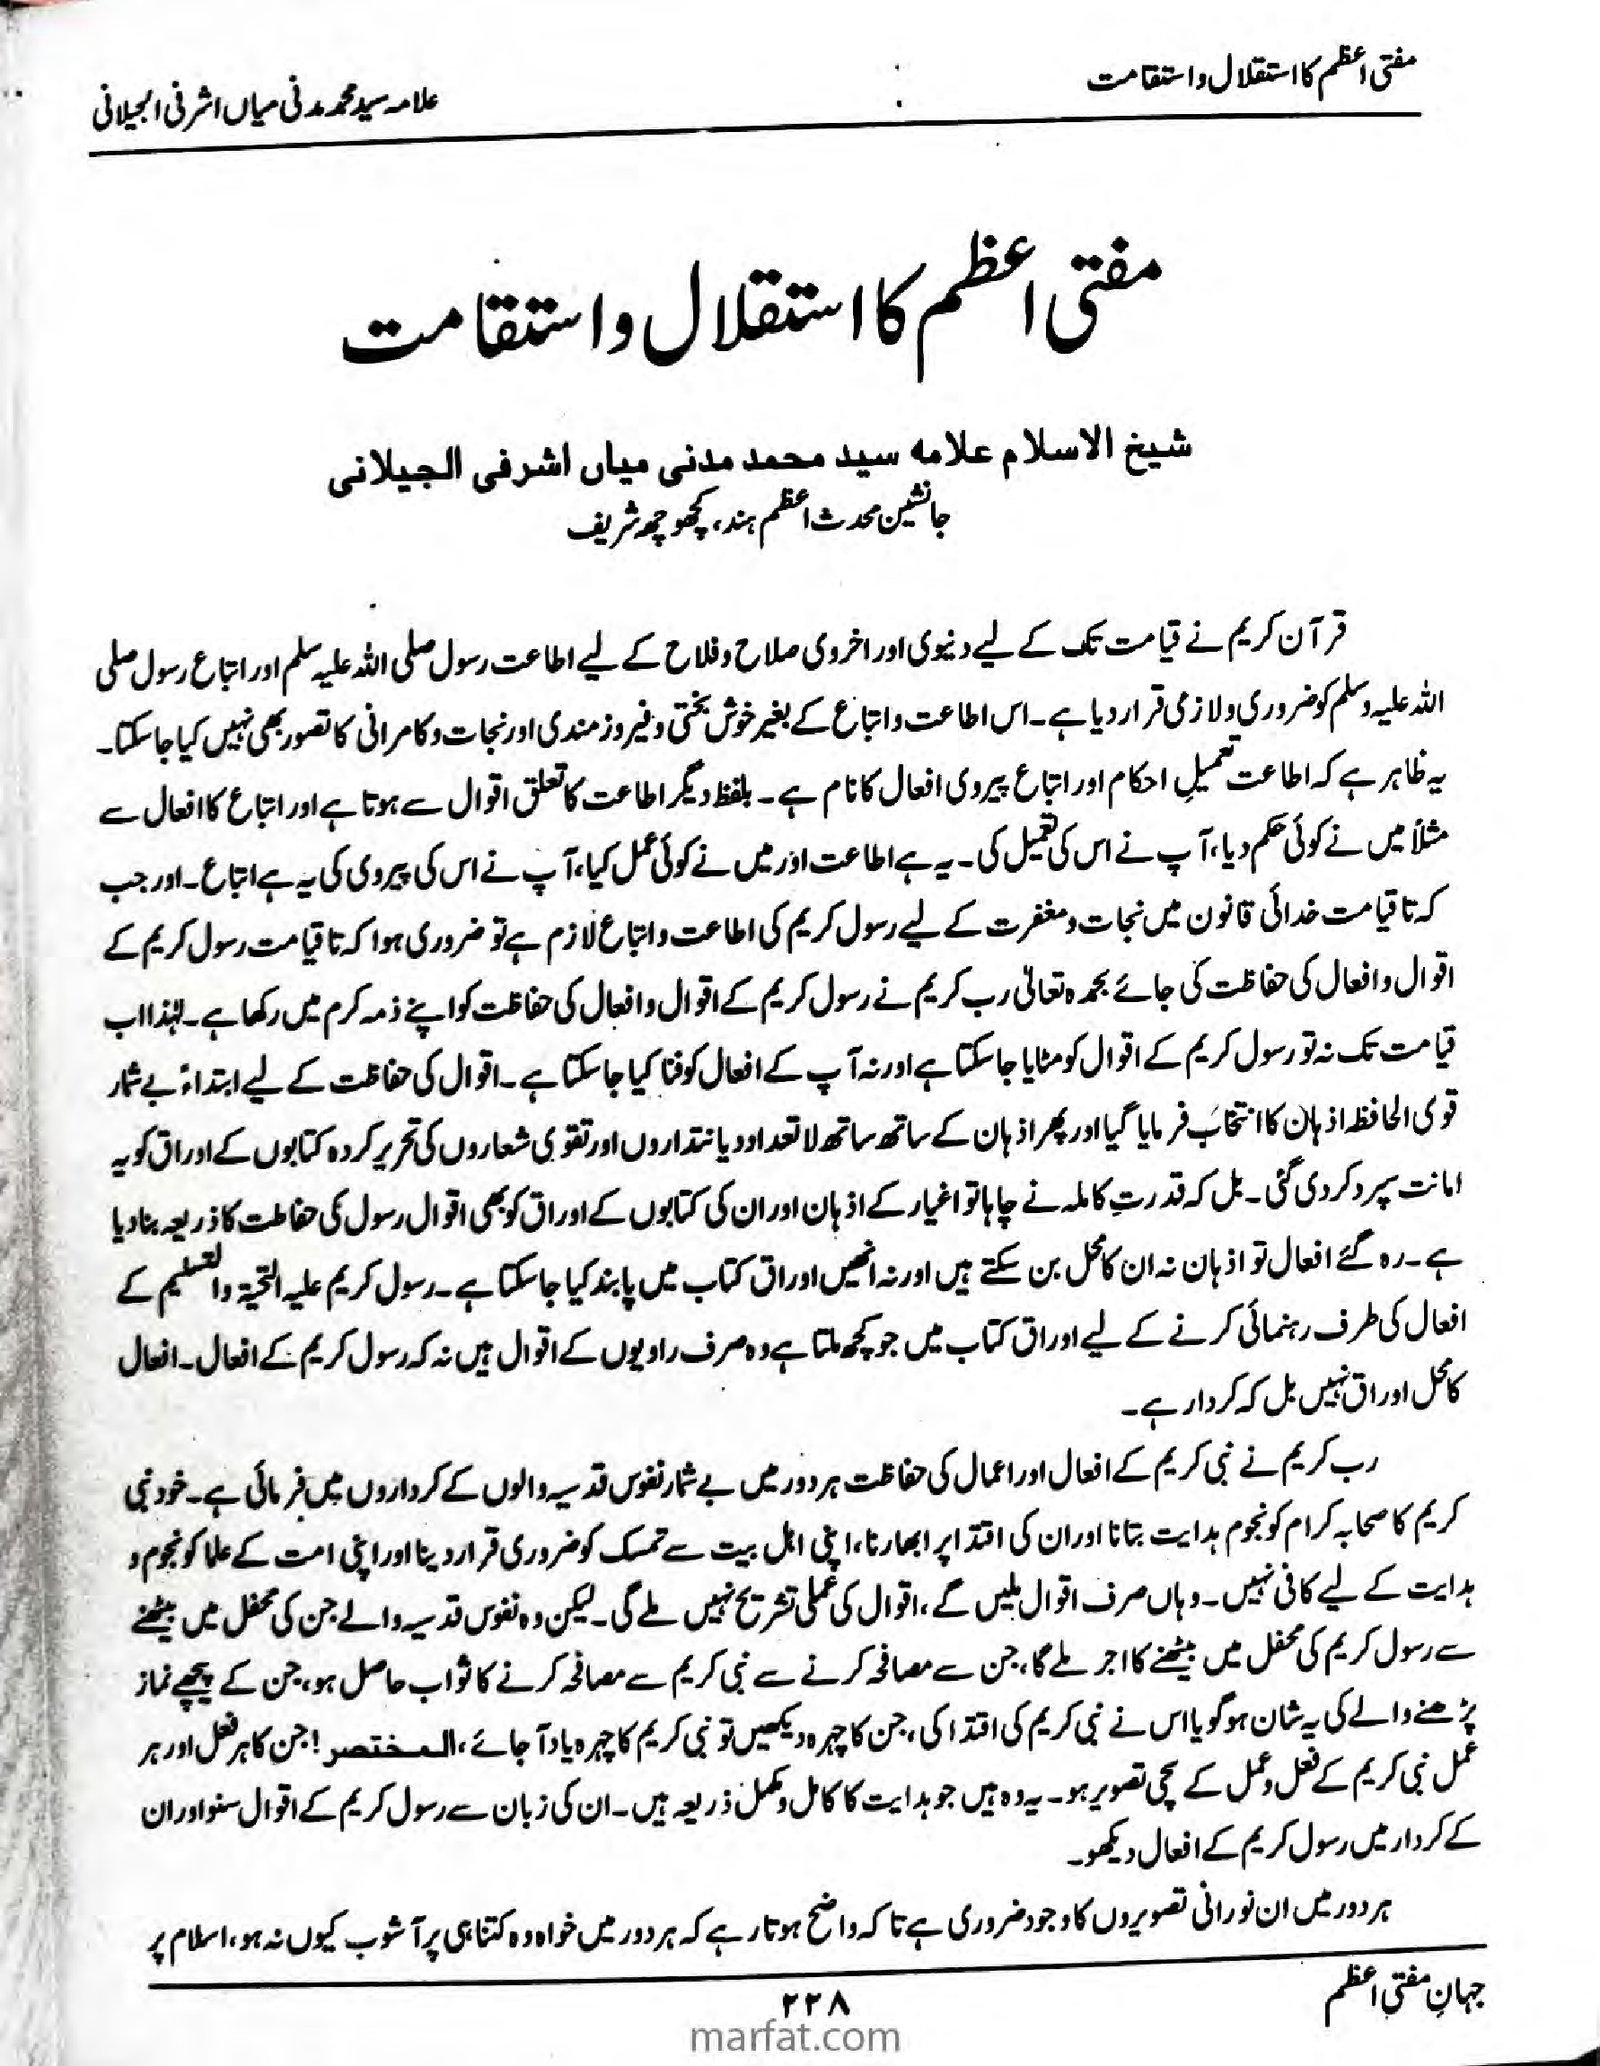 مفتی اعظم کا استقلال و استقامت
علامہ سید محمد مدنی میاں اشرفی الجیلانی
مفتی اعظم کا استقلال و استقامت
شیخ الاسلام علامہ سید محمد مدنی میاں اشرفی الجیلانی
جانشین محدث اعظم ہند، کچھوچھہ شریف
قرآن کریم نے قیامت تک کے لیے دنیوی اور اخروی صلاح و فلاح کے لیے اطاعت رسول صلی اللہ علیہ سلم اور اتباع رسول صلی
اللہ علیہ وسلم کو ضروری ولازمی قرار دیا ہے۔ اس اطاعت و اتباع کے بغیر خوش بختی و فیروزمندی اور نجات و کامرانی کا تصور بھی نہیں کیا جاسکتا۔
یہ ظاہر ہے کہ اطاعت تعمیلِ احکام اور اتباع پیروی افعال کا نام ہے۔ بلفظ دیگر اطاعت کا تعلق اقوال سے ہوتا ہے اور اتباع کا افعال سے
مثلاً میں نے کوئی حکم دیا، آپ نے اس کی تعمیل کی۔ یہ ہے اطاعت اور میں نے کوئی عمل کیا، آپ نے اس کی پیروی کی یہ ہے اتباع۔ اور جب
کہ تا قیامت خدائی قانون میں نجات و مغفرت کے لیے رسول کریم کی اطاعت و اتباع لازم ہے تو ضروری ہوا کہ تا قیامت رسول کریم کے
اقوال و افعال کی حفاظت کی جائے بحمدہ تعالیٰ رب کریم نے رسول کریم کے اقوال و افعال کی حفاظت کو اپنے ذمہ کرم میں رکھا ہے۔ لہٰذا اب
قیامت تک نہ تو رسول کریم کے اقوال کو مٹایا جاسکتا ہے اور نہ آپ کے افعال کو فنا کیا جاسکتا ہے۔ اقوال کی حفاظت کے لیے ابتداءً بے شمار
قوی الحافظہ اذہان کا انتخاب فرمایا گیا اور پھر اذہان کے ساتھ ساتھ لاتعداد دیانتداروں اور تقویٰ شعاروں کی تحریر کردہ کتابوں کے اوراق کو یہ
امانت سپرد کردی گئی۔ بل کہ قدرتِ کاملہ نے چاہا تو اغیار کے اذہان اور ان کی کتابوں کے اوراق کو بھی اقوال رسول کی حفاظت کا ذریعہ بنا دیا
ہے۔ رہ گئے افعال تو اذہان نہ ان کا محل بن سکتے ہیں اور نہ انھیں اوراق کتاب میں پابند کیا جاسکتا ہے۔ رسول کریم علیہ التحیۃ والتسلیم کے
افعال کی طرف رہنمائی کرنے کے لیے اوراق کتاب میں جو کچھ ملتا ہے وہ صرف راویوں کے اقوال ہیں نہ کہ رسول کریم کے افعال۔ افعال
کا محل اوراق نہیں بل کہ کردار ہے۔
رب کریم نے نبی کریم کے افعال اور اعمال کی حفاظت ہر دور میں بے شمار نفوس قدسیہ والوں کے کرداروں میں فرمائی ہے۔ خود نبی
کریم کا صحابہ کرام کو نجوم ہدایت بتانا اور ان کی اقتدا پر ابھارنا، اپنی اہل بیت سے تمسک کو ضروری قرار دینا اور اپنی امت کے علما کو نجوم و
ہدایت کے لیے کافی نہیں۔ وہاں صرف اقوال ملیں گے، اقوال کی عملی تشریح نہیں ملے گی۔ لیکن وہ نفوس قدسیہ والے جن کی محفل میں بیٹھنے
سے رسول کریم کی محفل میں بیٹھنے کا اجر ملے گا، جن سے مصافحہ کرنے سے نبی کریم سے مصافحہ کرنے کا ثواب حاصل ہو، جن کے پیچھے نماز
پڑھنے والے کی یہ شان ہو گویا اس نے نبی کریم کی اقتدا کی، جن کا چہرہ دیکھیں تو نبی کریم کا چہرہ یاد آجائے، المختصر! جن کا ہر فعل اور ہر
عمل نبی کریم کے فعل و عمل کے سچی تصویر ہو۔ یہ وہ ہیں جو ہدایت کا کامل و مکمل ذریعہ ہیں۔ ان کی زبان سے رسول کریم کے اقوال سنو اور ان
کے کردار میں رسول کریم کے افعال دیکھو۔
ہر دور میں ان نورانی تصویروں کا وجود ضروری ہے تا کہ واضح ہوتا رہے کہ ہر دور میں خواہ وہ کتنا ہی پر آشوب کیوں نہ ہو، اسلام پر
جہانِ مفتی اعظم
۲۲۸
marfat.com